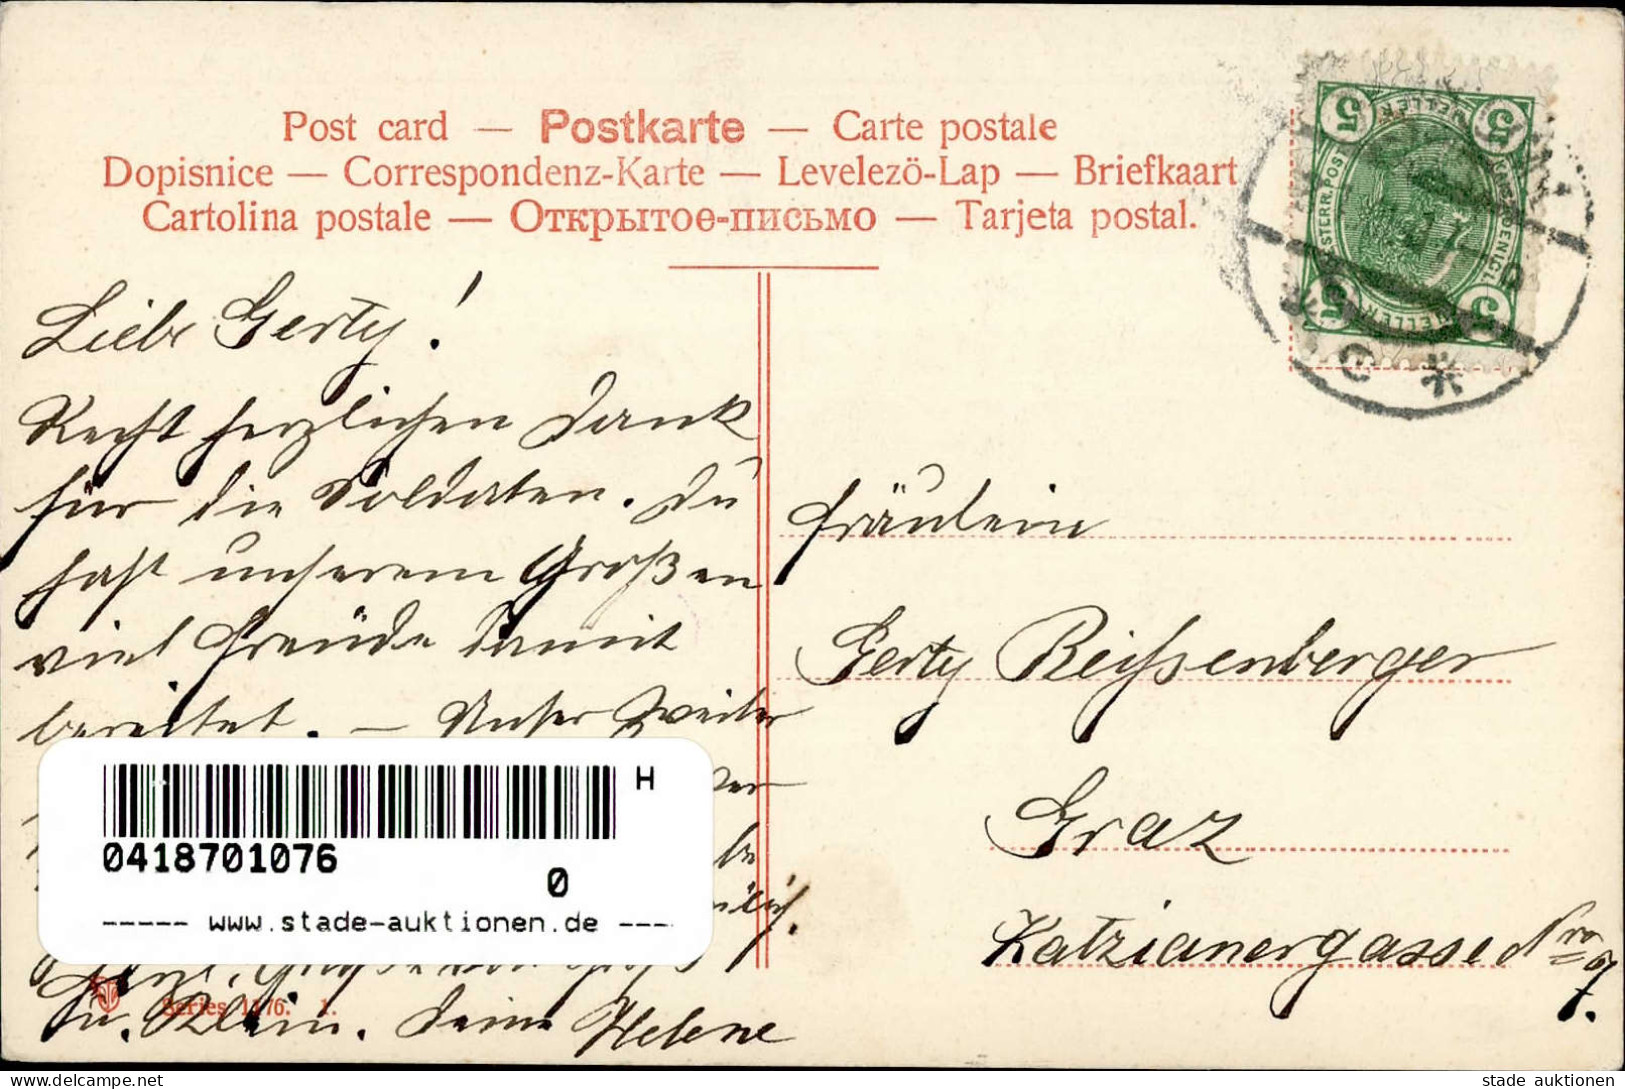 Post card — Postkarte — Carte postale
Dopisnice — Correspondenz-Karte — Levelezö-Lap — Briefkaart
Cartolina postale — Открытое-письмо — Tarjeta postal.
5 HELLER 5
KAISERL. KOENIGL. OESTERR. POST
5 HELLER 5
Liebe Gerty!
Recht herzlichen Dank
für die Soldaten. Du
hast unserem Großen
viel Freude damit
bereitet. — Unser Zweiter
H
0418701076
0
----- www.stade-auktionen.de ----
Series 1176. 1.
u. Klein. Deine Helene
Fräulein
Gerty Reißenberger
Graz
Katzianergasse Nro 7.
delcampe.net
stade auktionen